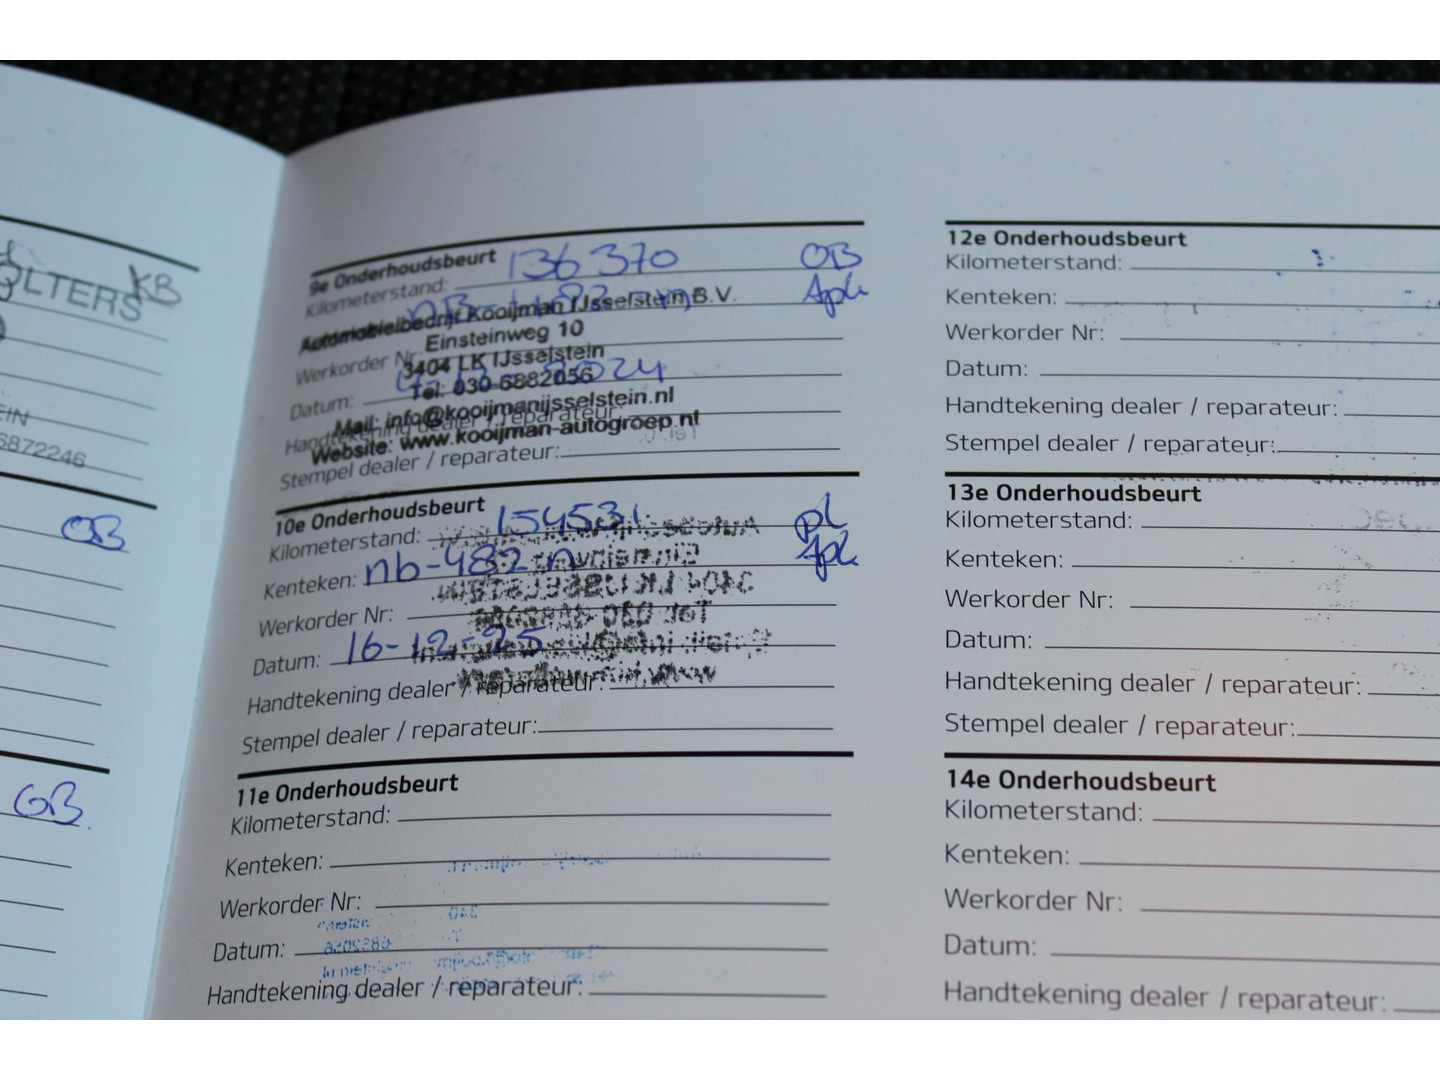 KB
OLTERS
EIN
6872246
OB
OB
9e Onderhoudsbeurt 136370 OB
Kilometerstand: Apk
Automobielbedrijf Kooijman IJsselstein B.V.
Einsteinweg 10
Werkorder Nr:
3404 LK IJsselstein
Tel: 030-6882056
Datum: 2024
Mail: info@kooijmanijsselstein.nl
Handtekening dealer / reparateur:
Website: www.kooijman-autogroep.nl
Stempel dealer / reparateur:
10e Onderhoudsbeurt
Kilometerstand: 154531 pl
Kenteken: nb-482 n Apk
Werkorder Nr:
Datum: 16-12-25
Handtekening dealer / reparateur:
Stempel dealer / reparateur:
11e Onderhoudsbeurt
Kilometerstand:
Kenteken:
Werkorder Nr:
Datum:
Handtekening dealer / reparateur:
12e Onderhoudsbeurt
Kilometerstand:
Kenteken:
Werkorder Nr:
Datum:
Handtekening dealer / reparateur:
Stempel dealer / reparateur:
13e Onderhoudsbeurt
Kilometerstand:
Kenteken:
Werkorder Nr:
Datum:
Handtekening dealer / reparateur:
Stempel dealer / reparateur:
14e Onderhoudsbeurt
Kilometerstand:
Kenteken:
Werkorder Nr:
Datum:
Handtekening dealer / reparateur: